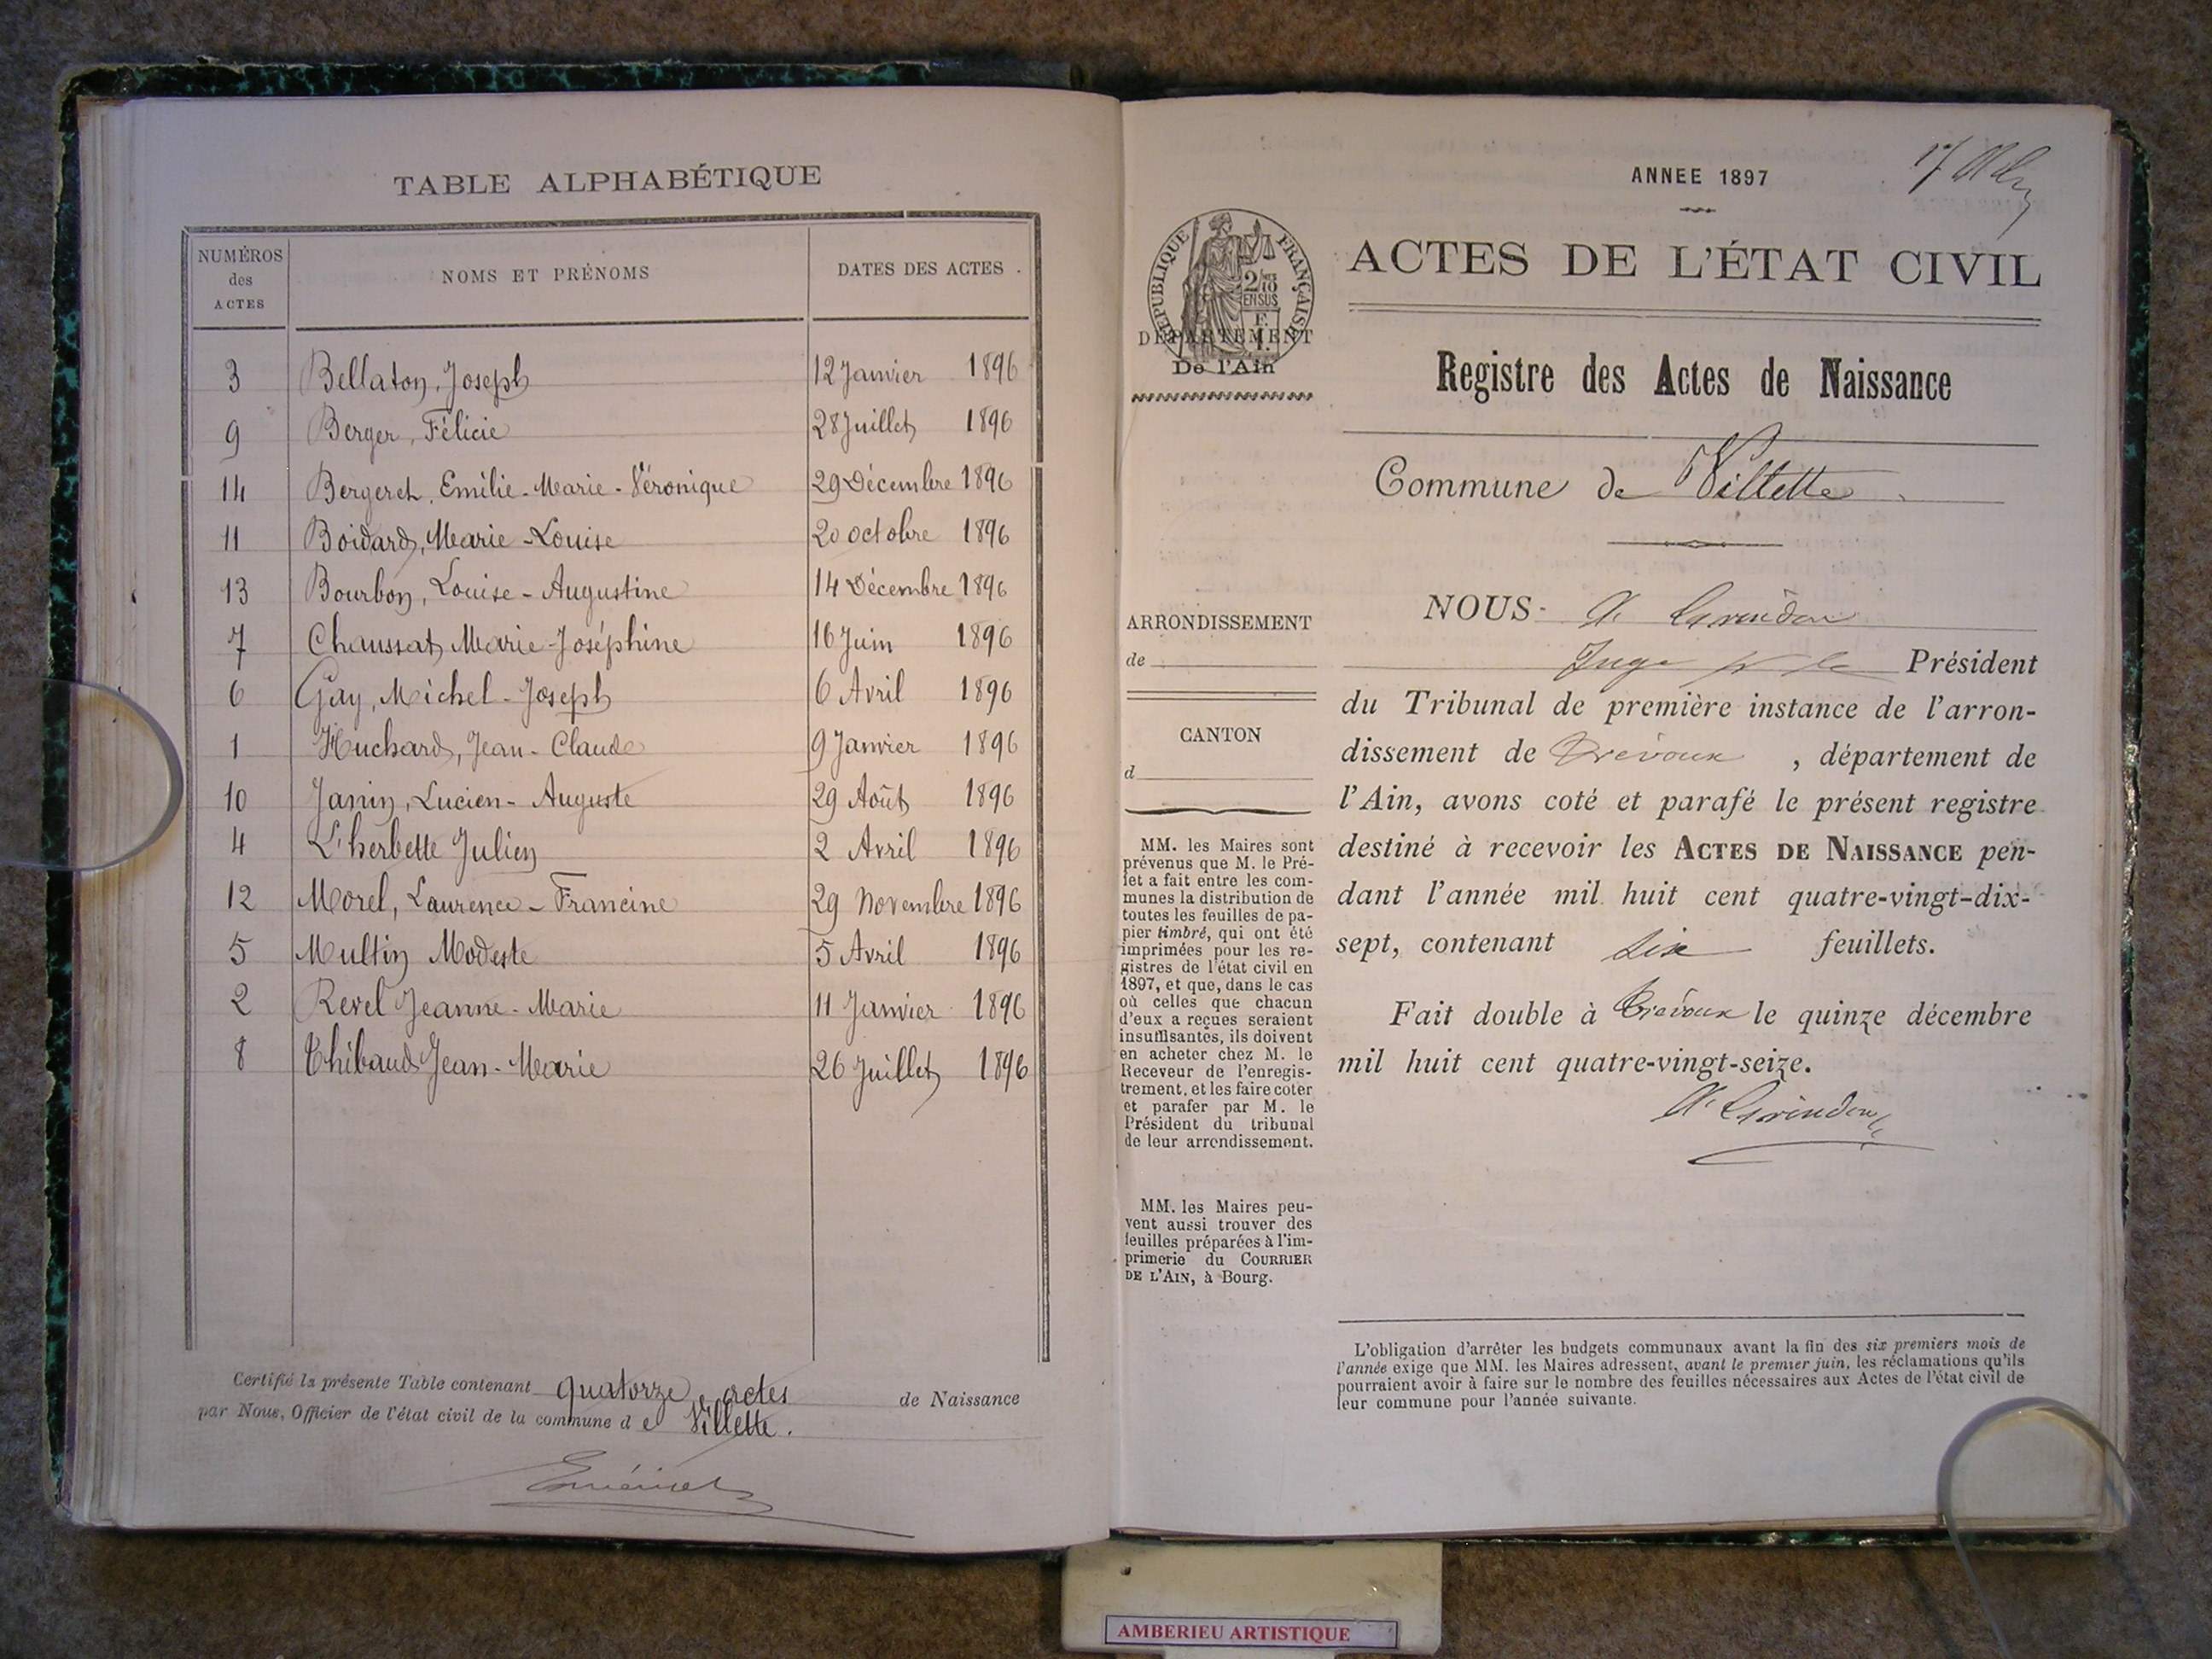 TABLE ALPHABÉTIQUE
NUMÉROS des ACTES NOMS ET PRÉNOMS DATES DES ACTES
3 Bellaton, Joseph 12 Janvier 1896
9 Berger, Félicie 28 Juillet 1896
14 Bergeret, Emilie-Marie-Véronique 29 Décembre 1896
11 Boidard, Marie-Louise 20 octobre 1896
13 Bourbon, Louise-Augustine 14 Décembre 1896
7 Chaussat, Marie-Joséphine 16 Juin 1896
6 Gay, Michel-Joseph 6 Avril 1896
1 Huchard, Jean-Claude 9 Janvier 1896
10 Janin, Lucien-Auguste 29 Août 1896
4 L'herbette Julien 2 Avril 1896
12 Morel, Laurence-Francine 29 Novembre 1896
5 Multin Modeste 5 Avril 1896
2 Revel Jeanne-Marie 11 Janvier 1896
8 Thibaud Jean-Marie 26 Juillet 1896
Certifié la présente Table contenant quatorze actes de Naissance
par Nous, Officier de l'état civil de la commune de Villette.
ANNEE 1897
RÉPUBLIQUE FRANÇAISE
2/10
EN SUS
DÉPARTEMENT
De l'Ain
ACTES DE L'ÉTAT CIVIL
Registre des Actes de Naissance
Commune de Villette
ARRONDISSEMENT
de
CANTON
d
MM. les Maires sont
prévenus que M. le Pré-
fet a fait entre les com-
munes la distribution de
toutes les feuilles de pa-
pier timbré, qui ont été
imprimées pour les re-
gistres de l'état civil en
1897, et que, dans le cas
où celles que chacun
d'eux a reçues seraient
insuffisantes, ils doivent
en acheter chez M. le
Receveur de l'enregis-
trement, et les faire coter
et parafer par M. le
Président du tribunal
de leur arrondissement.
MM. les Maires peu-
vent aussi trouver des
feuilles préparées à l'im-
primerie du COURRIER
DE L'AIN, à Bourg.
NOUS
Juge Président
du Tribunal de première instance de l'arron-
dissement de Trévoux, département de
l'Ain, avons coté et parafé le présent registre
destiné à recevoir les ACTES DE NAISSANCE pen-
dant l'année mil huit cent quatre-vingt-dix-
sept, contenant six feuillets.
Fait double à Trévoux le quinze décembre
mil huit cent quatre-vingt-seize.
L'obligation d'arrêter les budgets communaux avant la fin des six premiers mois de
l'année exige que MM. les Maires adressent, avant le premier juin, les réclamations qu'ils
pourraient avoir à faire sur le nombre des feuilles nécessaires aux Actes de l'état civil de
leur commune pour l'année suivante.
AMBERIEU ARTISTIQUE